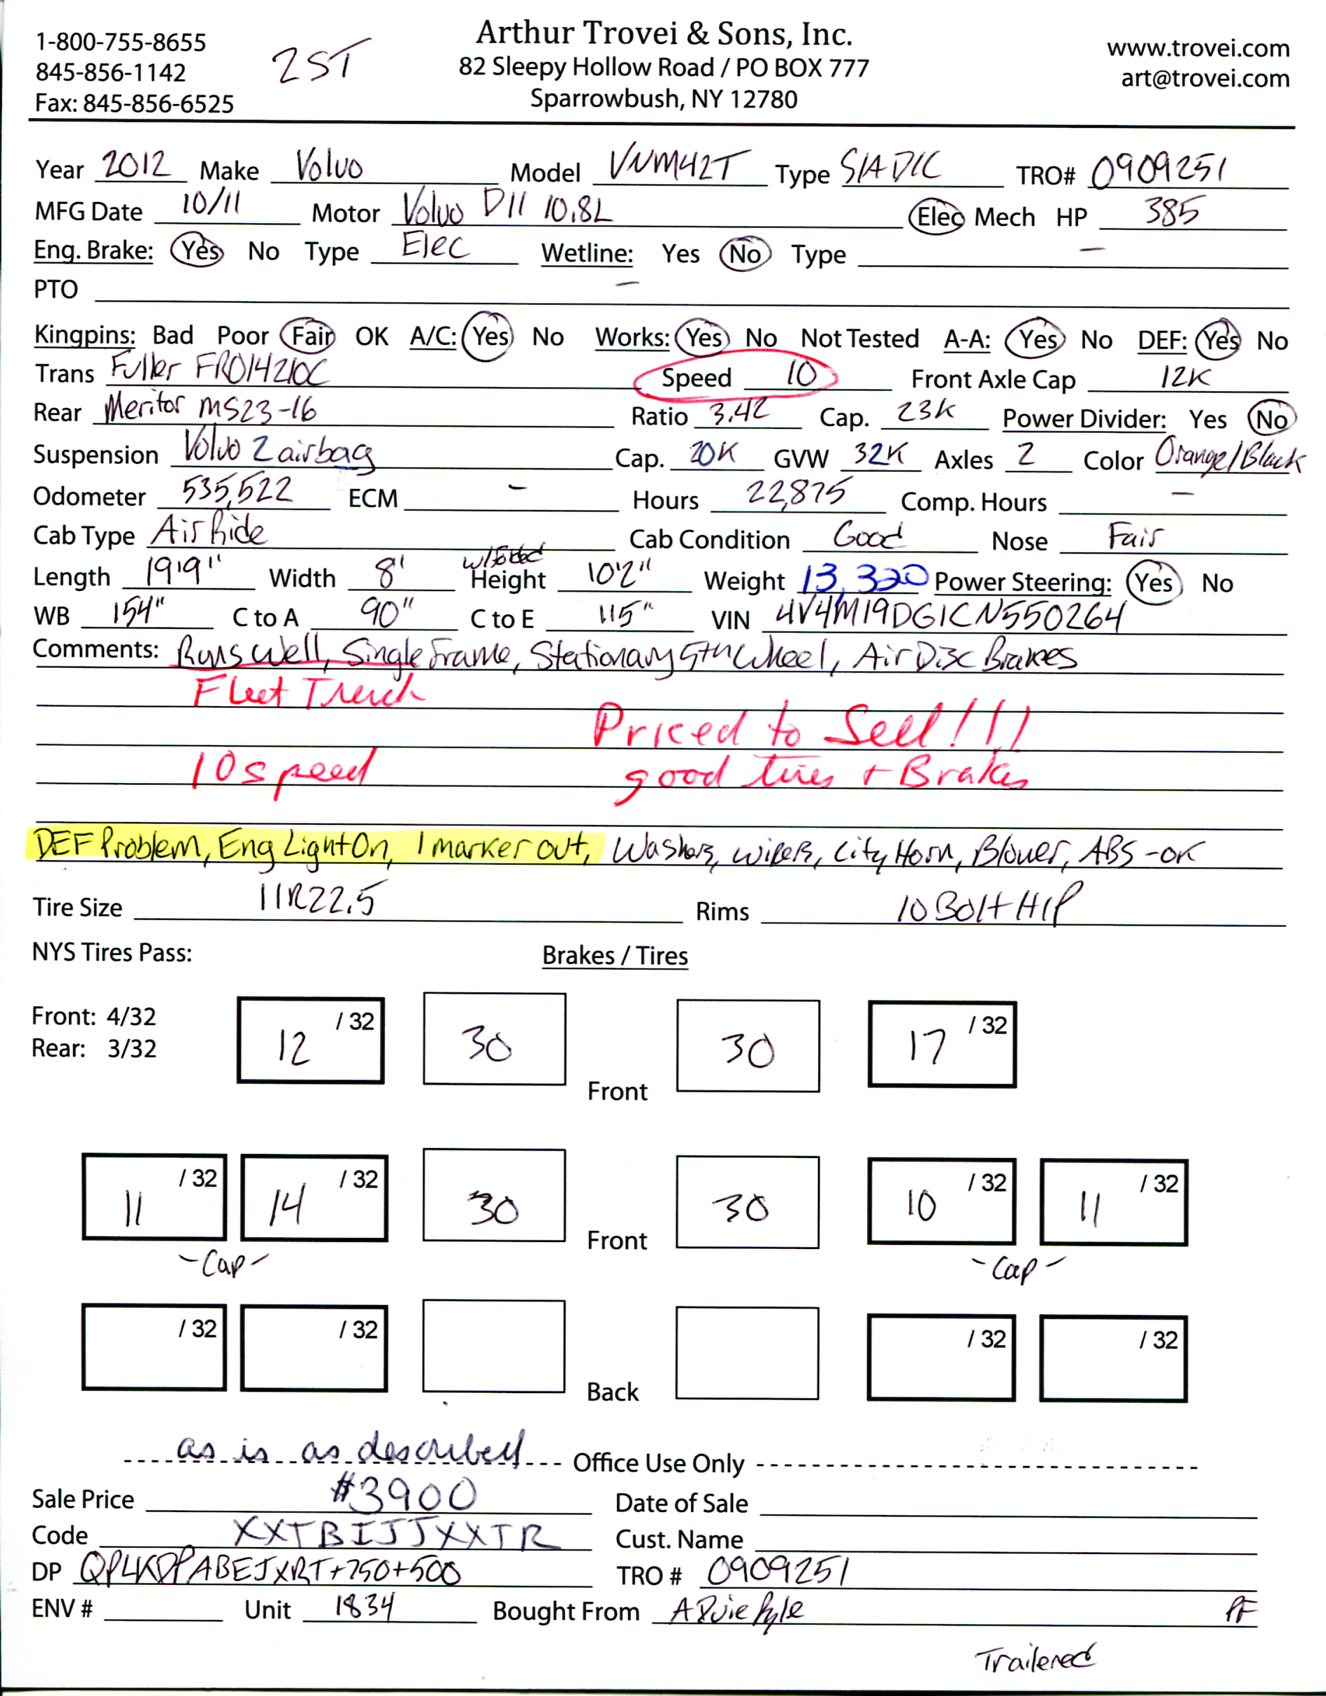 1-800-755-8655
845-856-1142
Fax: 845-856-6525
2ST
Arthur Trovei & Sons, Inc.
82 Sleepy Hollow Road / PO BOX 777
Sparrowbush, NY 12780
www.trovei.com
art@trovei.com
Year 2012 Make Volvo Model VNM42T Type S/A D/C TRO# 0909251
MFG Date 10/11 Motor Volvo D11 10.8L Elec Mech HP 385
Eng. Brake: Yes No Type Elec Wetline: Yes No Type –
PTO –
Kingpins: Bad Poor Fair OK A/C: Yes No Works: Yes No Not Tested A-A: Yes No DEF: Yes No
Trans Fuller FRO14210C Speed 10 Front Axle Cap 12K
Rear Meritor MS23-16 Ratio 3.42 Cap. 23K Power Divider: Yes No
Suspension Volvo 2 airbag Cap. 20K GVW 32K Axles 2 Color Orange/Black
Odometer 535,522 ECM – Hours 22,875 Comp. Hours –
Cab Type Air Ride Cab Condition Good Nose Fair
Length 19'9" Width 8' Height 10'2" Weight 13,320 Power Steering: Yes No
WB 154" C to A 90" C to E 115" VIN 4V4M19DG1CN550264
Comments: Runs Well, Single Frame, Stationary 5th Wheel, Air Disc Brakes
Fleet Truck
Priced to Sell!!!
10 speed good tires + Brakes
DEF Problem, Eng Light On, 1 marker out, Washers, wipers, City Horn, Blower, ABS - OK
Tire Size 11R22.5 Rims 10 Bolt H/P
NYS Tires Pass: Brakes / Tires
Front: 4/32
Rear: 3/32
12 /32 30 Front 30 17 /32
11 /32 14 /32 30 Front 30 10 /32 11 /32
-Cap- -Cap-
/32 /32 Back /32 /32
as is as described Office Use Only
Sale Price #3900 Date of Sale
Code XXTBIJJXXTR Cust. Name
DP QPLKDPABEJXRT+750+500 TRO # 0909251
ENV # Unit 1834 Bought From PF
Trailered